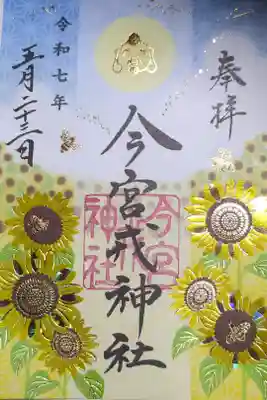 奉拝
今宮戎神社
今宮
神社
令和七年
五月二十三日